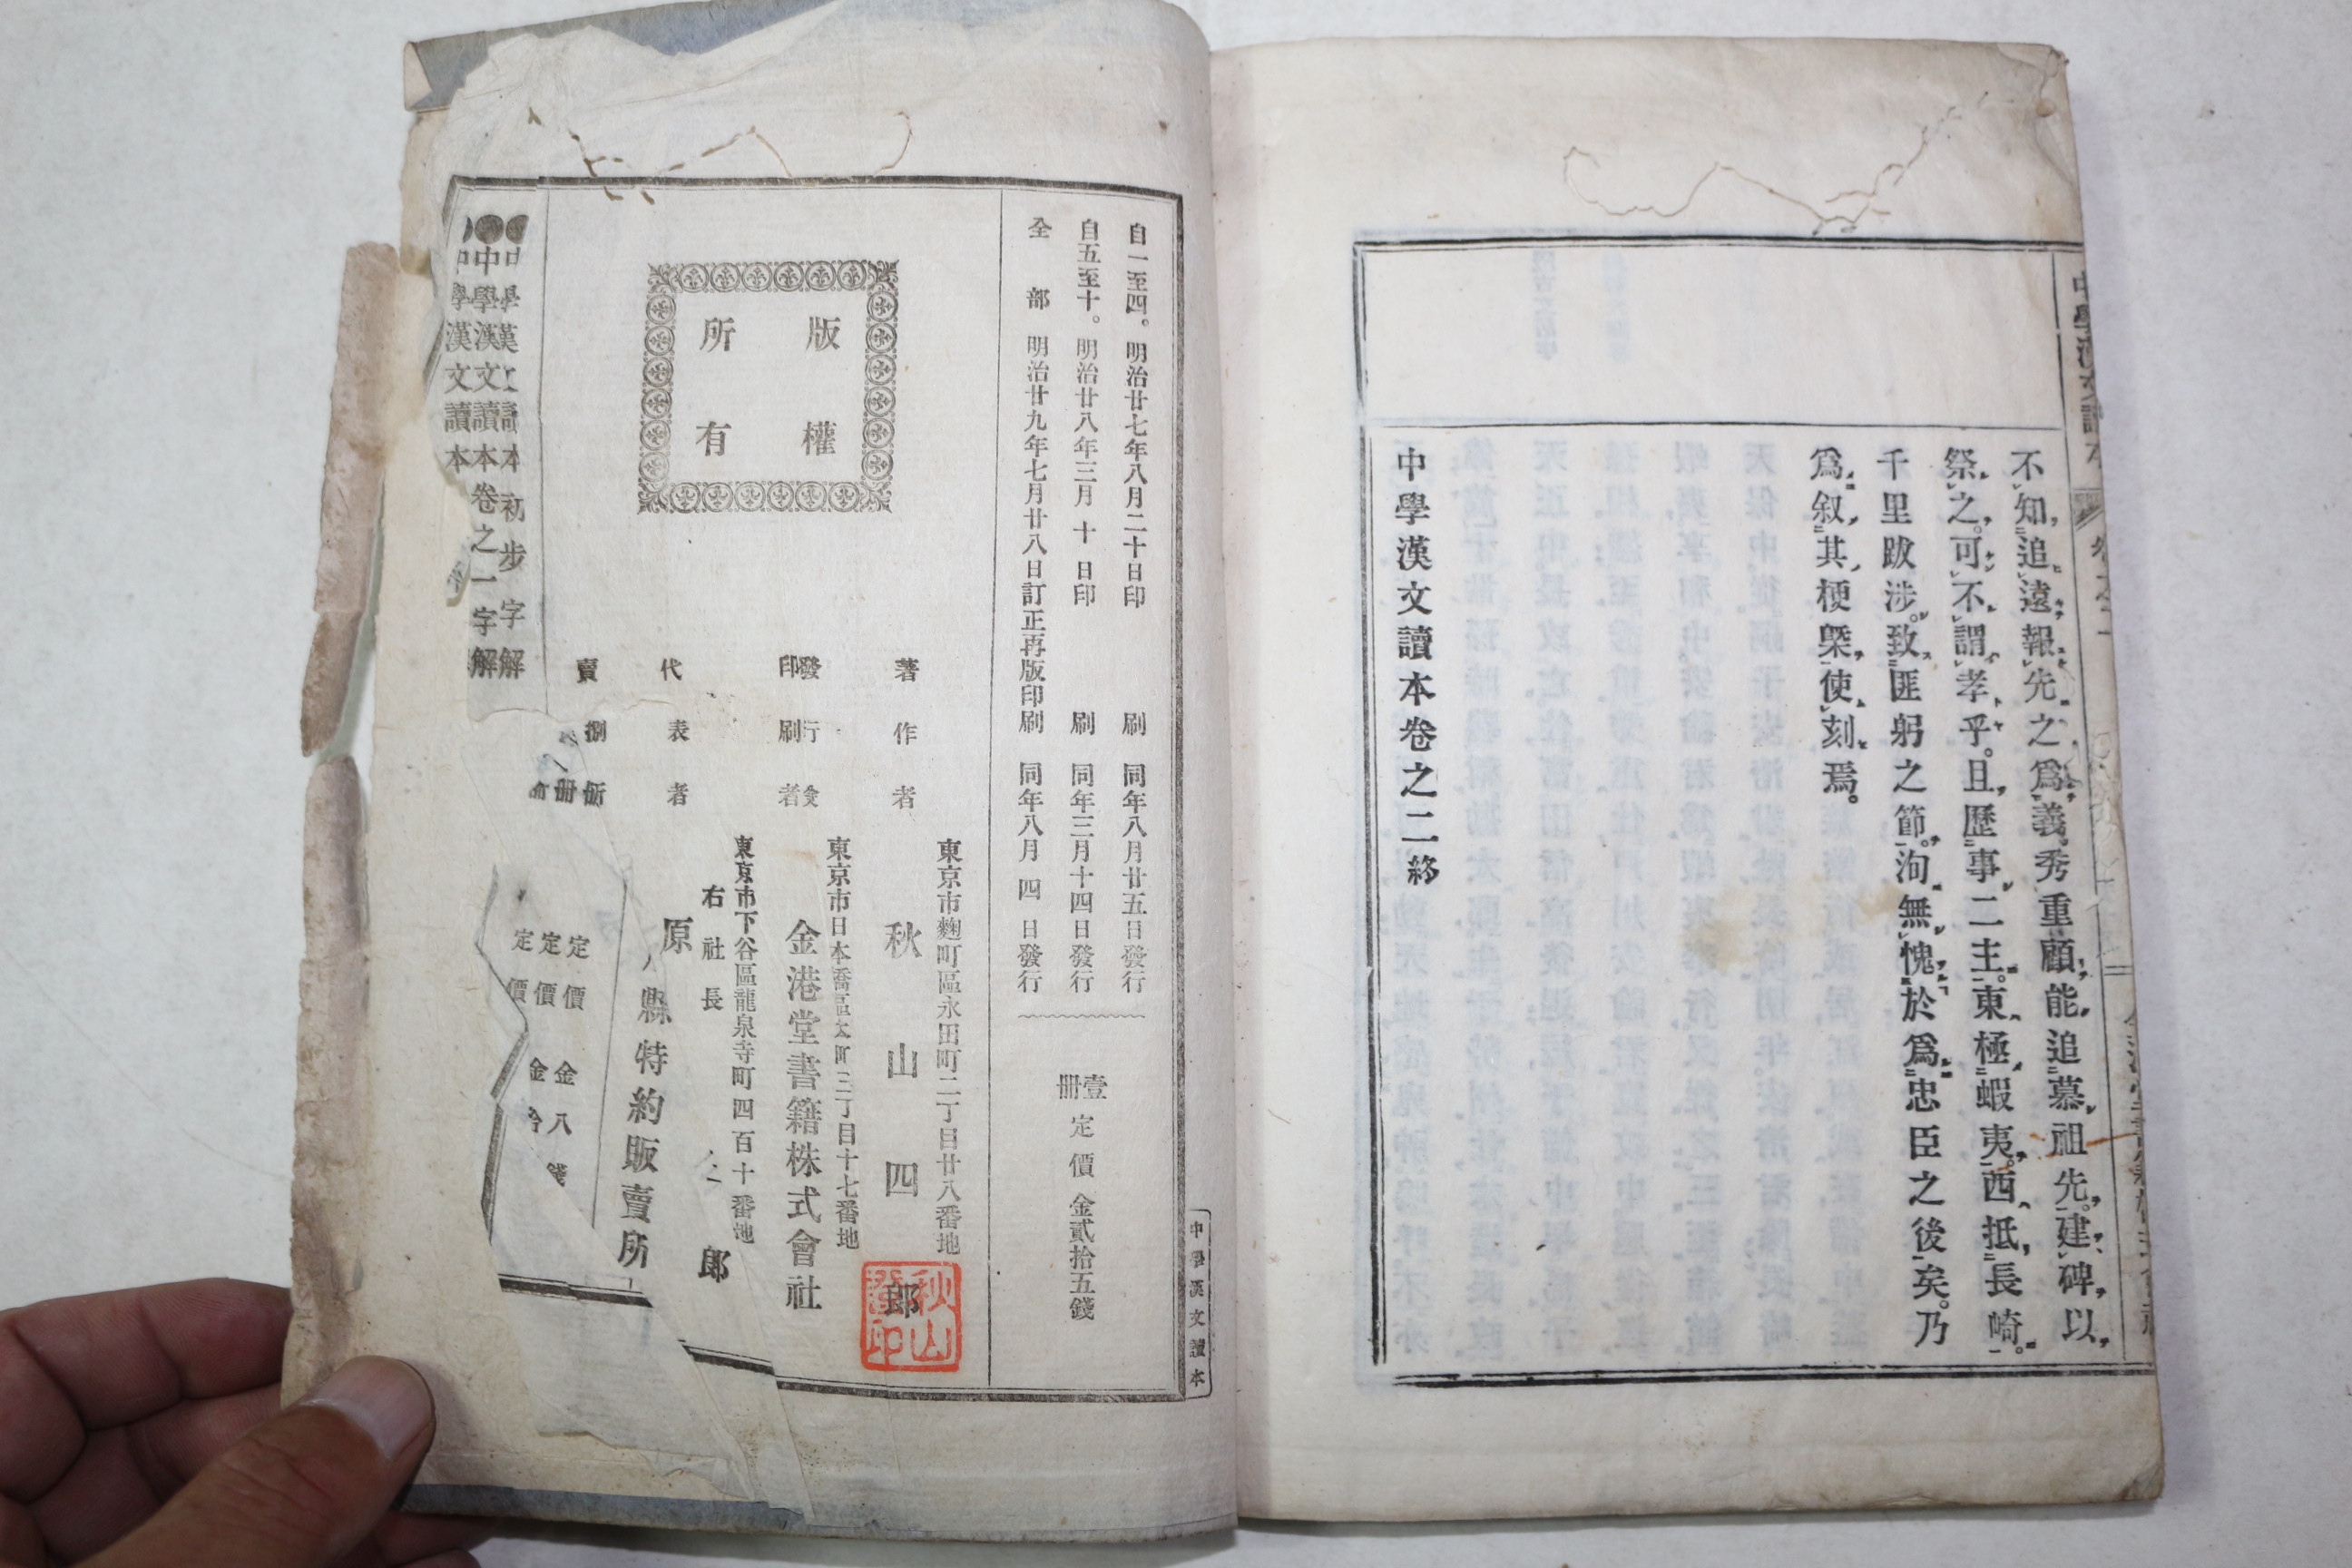 不知追遠報先之爲義秀重顧能追慕祖先。建碑以
祭之。可不謂孝乎。且歷事二主。東極蝦夷。西抵長崎。
千里跋涉。致匪躬之節。洵無愧於爲忠臣之後矣。乃
爲叙其梗槩使刻焉。
中學漢文讀本卷之二終
自一至四。明治廿七年八月二十日印刷 同年八月廿五日發行
自五至十。明治廿八年三月十日印刷 同年三月十四日發行
全部 明治廿九年七月廿八日訂正再版印刷 同年八月四日發行
壹冊 定價金貳拾五錢
中學漢文讀本
版權
所有
著作者
東京市麴町區永田町二丁目廿八番地
秋山四郎
發行
印刷者
東京市日本橋區本町三丁目十七番地
金港堂書籍株式會社
代表者
東京市下谷區龍泉寺町四百十番地
右社長
原 郎
賣捌所
縣特約販賣所
中學漢文讀本初步字解
定價 金八錢
●中學漢文讀本卷之一字解
定價 金
中學漢文讀本
定價